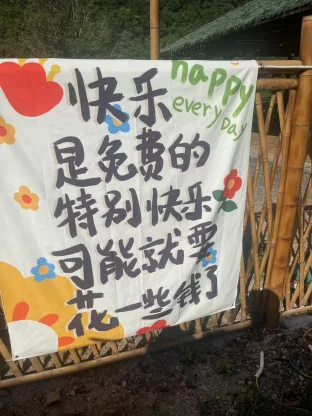 happy
every day
快乐
是免费的
特别快乐
可能就要
花一些钱了